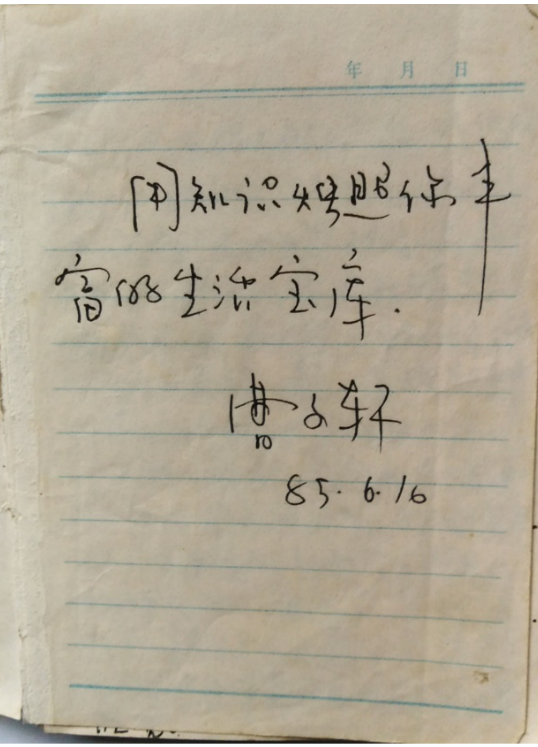 年 月 日
用知识烛照你丰
富的生活宝库.
曹文轩
85.6.16